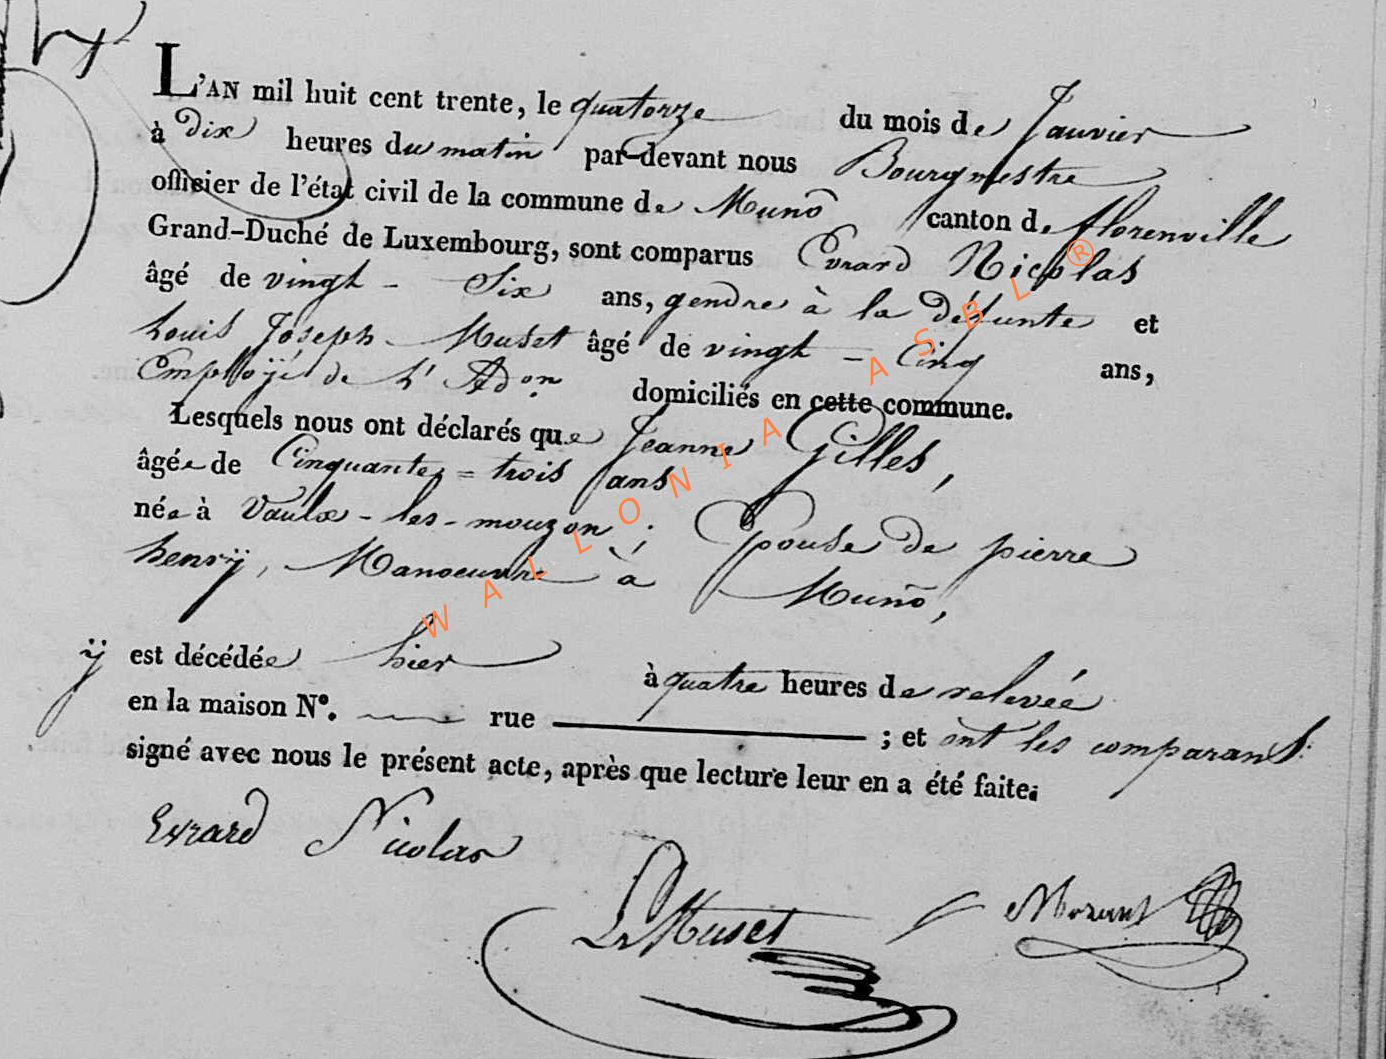 L'AN mil huit cent trente, le quatorze du mois de Janvier
à dix heures du matin par-devant nous Bourgmestre
officier de l'état civil de la commune de Muno canton de florenville
Grand-Duché de Luxembourg, sont comparus Evrard Nicolas
âgé de vingt - Six ans, gendre à la défunte et
Louis Joseph Muset âgé de vingt - Cinq ans,
Employé de l'Adon. domiciliés en cette commune.
Lesquels nous ont déclarés que Jeanne Gilles,
âgée de Cinquante = trois ans
née à Vaulx - les - mouzon; Epouse de pierre
henrÿ, Manoeuvre à Muno,
ÿ est décédée hier à quatre heures de relevée
en la maison N°. rue ; et ont les comparans
signé avec nous le présent acte, après que lecture leur en a été faite.
Evrard Nicolas
Muset
WALLONIA ASBL ®